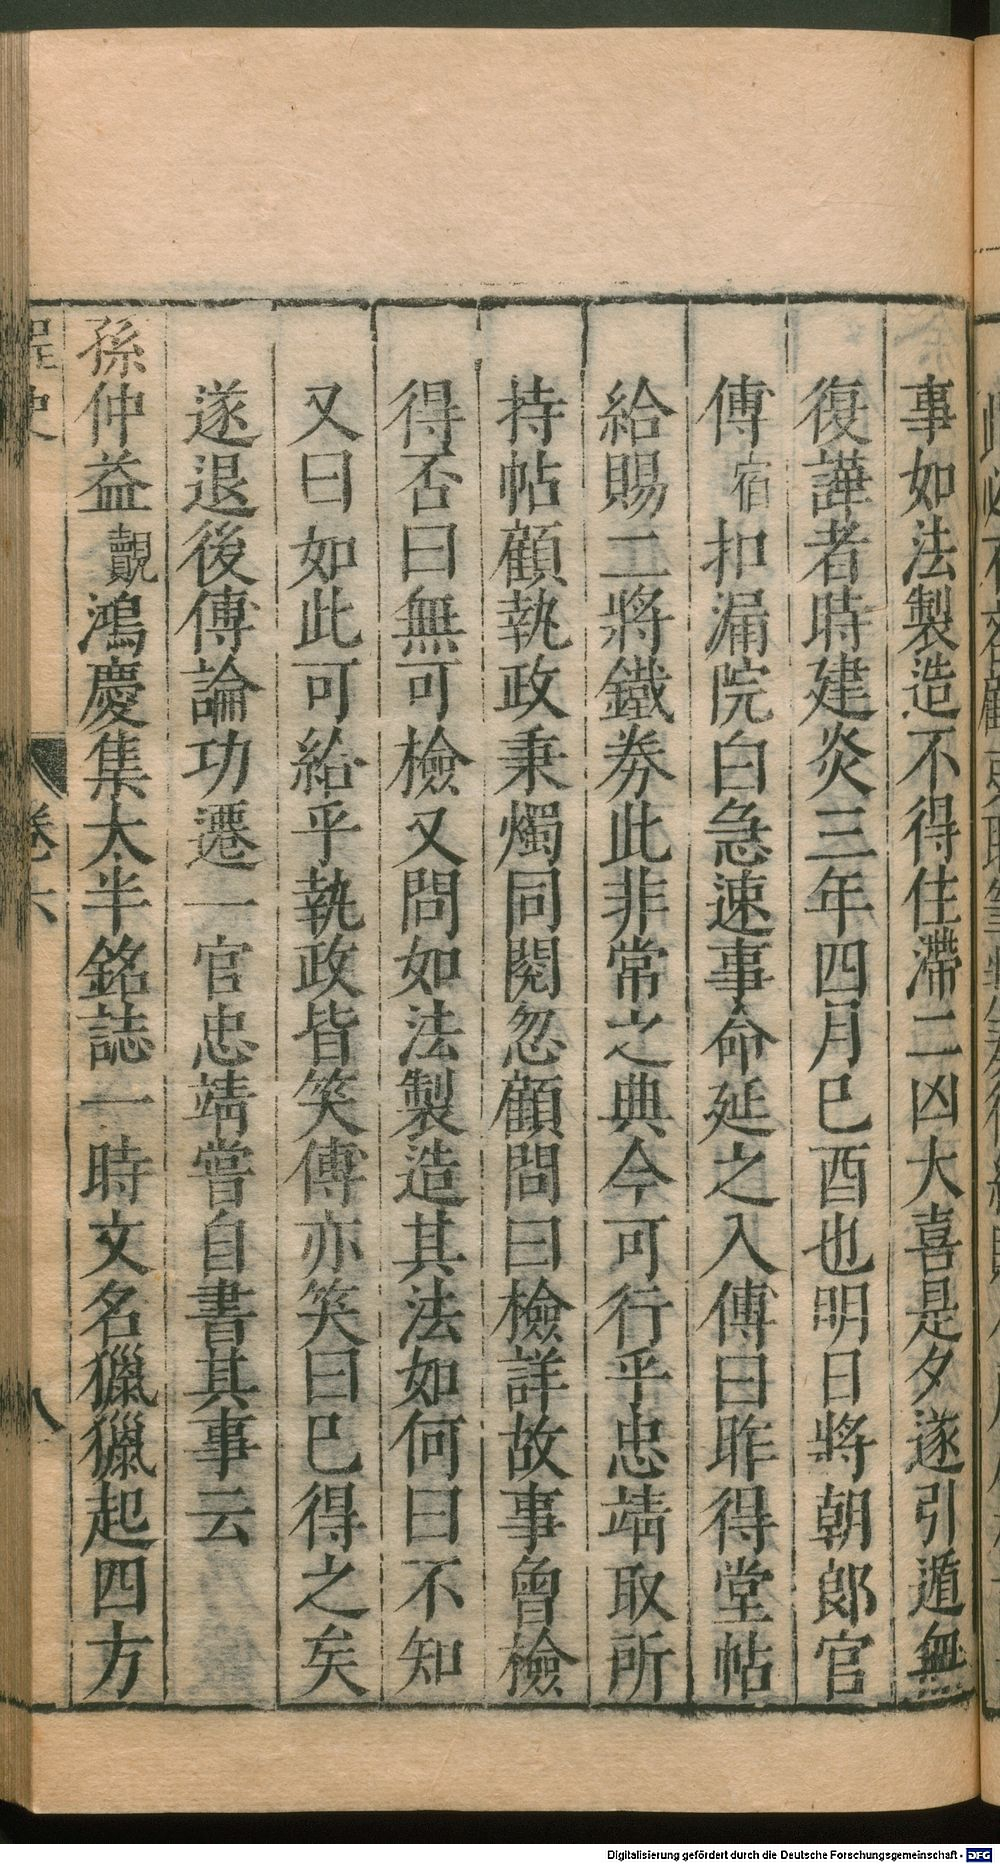 事如法製造不得住滯二凶大喜是夕遂引遁無
復譁者時建炎三年四月巳酉也明日將朝郎官
傅宿扣漏院白急速事命延之入傅曰昨得堂帖
給賜二將鐵券此非常之典今可行乎忠靖取所
持帖顧執政秉燭同閱忽顧問曰檢詳故事曾檢
得否曰無可檢又問如法製造其法如何曰不知
又曰如此可給乎執政皆笑傅亦笑曰巳得之矣
遂退後傅論功遷一官忠靖嘗自書其事云
孫仲益覿鴻慶集大半銘誌一時文名獵獵起四方
桯史
卷六
八
Digitalisierung gefördert durch die Deutsche Forschungsgemeinschaft - DFG